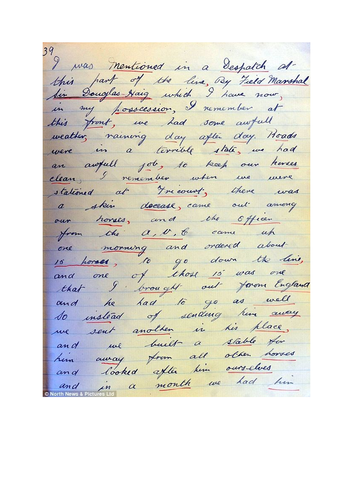 39
I was Mentioned in a Despatch at
this part of the line, By Field Marshal
Sir Douglas Haig which I have now,
in my possession, I remember at
this front, we had some awfull
weather, raining day after day. Roads
were in a terrible state, we had
an awfull job, to keep our horses
clean, I remember when we were
stationed at Fricourt, there was
a skin decease, came out among
our horses, and the Officer
from the A,V,C came up
one morning and ordered about
15 horses, to go down the line,
and one of those 15 was one
that I brought out from England
and he had to go as well
So instead of sending him away
we sent another in his place,
and we built a stable for
him away from all other horses
and looked after him ourselves
and in a month we had him
© North News & Pictures Ltd